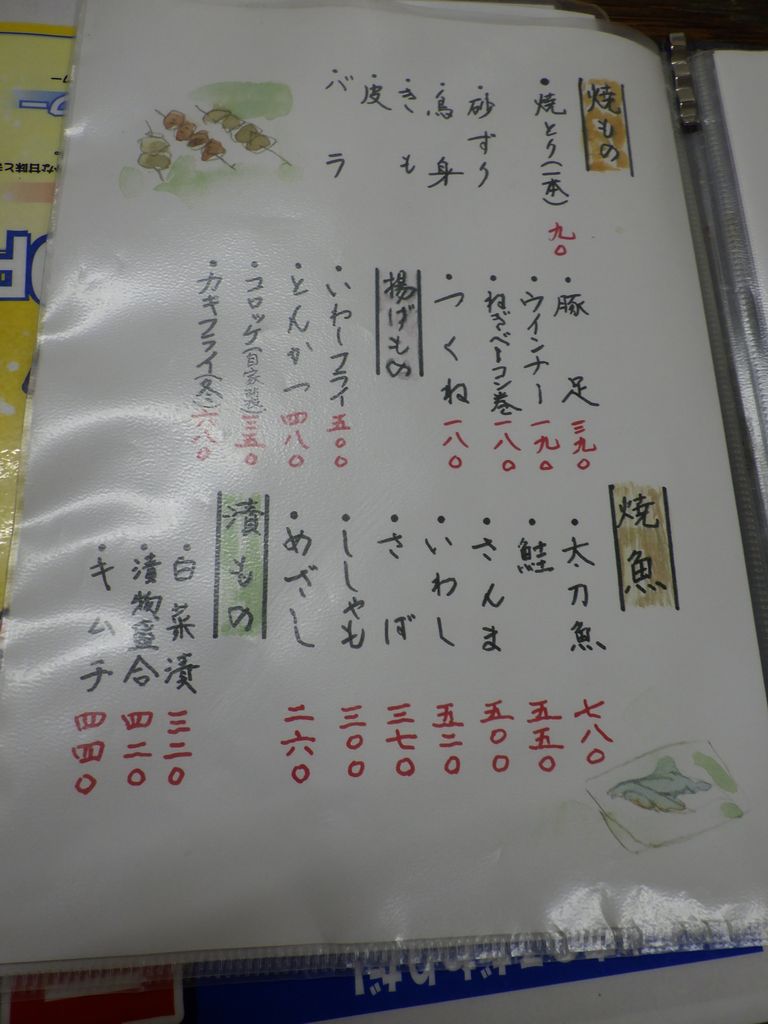 焼もの
・焼とり(一本) 九〇
・砂ずり
・鳥身
・きも
・皮
・バラ
・豚足 三九〇
・ウインナー 一九〇
・ねぎベーコン巻 一八〇
・つくね 一八〇
揚げもの
・いわしフライ 五〇〇
・とんかつ 四八〇
・コロッケ(自家製) 三五〇
・カキフライ(冬) 六八〇
焼魚
・太刀魚 七八〇
・鮭 五五〇
・さんま 五〇〇
・いわし 五二〇
・さば 三七〇
・ししゃも 三〇〇
・めざし 二六〇
漬もの
・白菜漬 三二〇
・漬物盛合 四二〇
・キムチ 四四〇